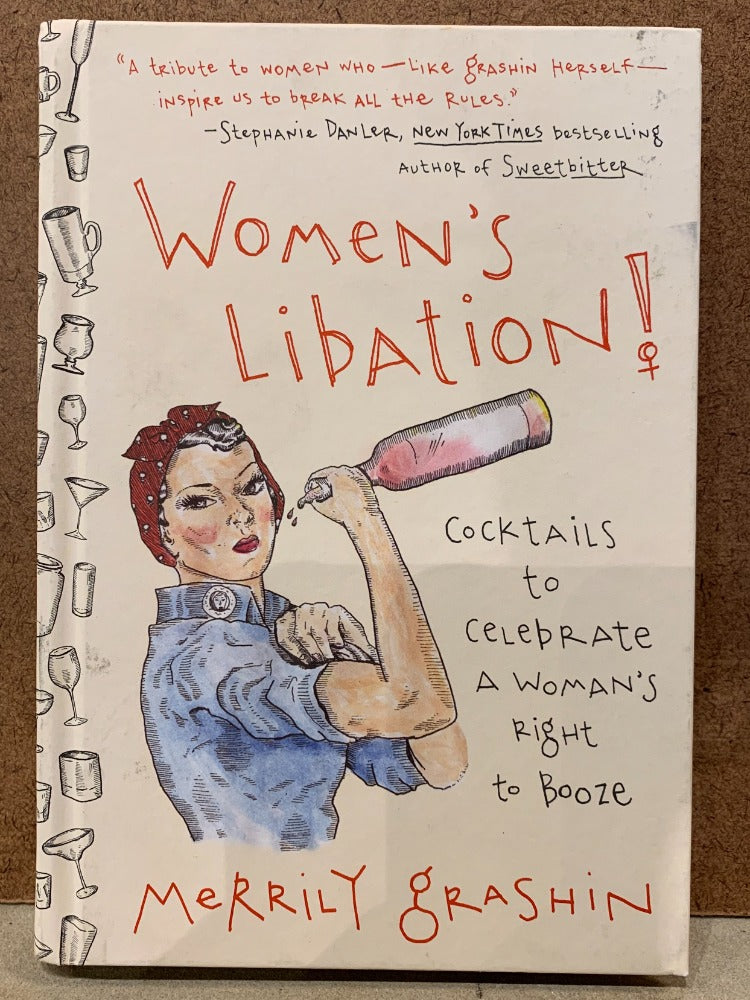 "A tribute to women who—like Grashin herself—
inspire us to break all the rules."
—Stephanie Danler, New York Times bestselling
author of Sweetbitter
Women's
Libation!
Cocktails
to
Celebrate
A Woman's
Right
to Booze
Merrily Grashin